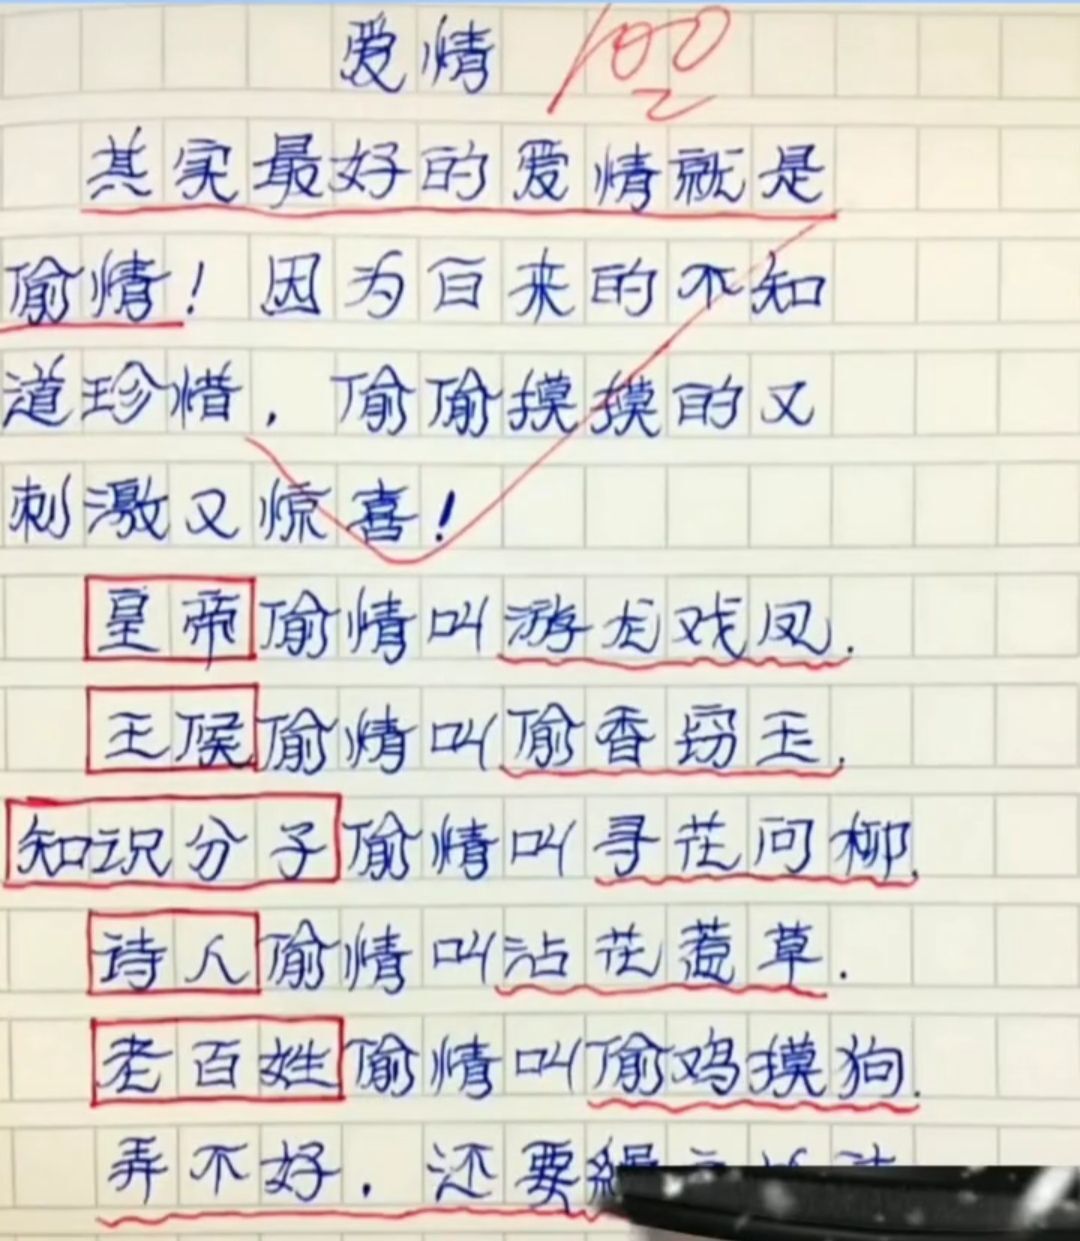 爱情 100
其实最好的爱情就是
偷情！因为百来的不知
道珍惜，偷偷摸摸的又
刺激又惊喜！
皇帝偷情叫游龙戏凤.
王候偷情叫偷香窃玉.
知识分子偷情叫寻花问柳.
诗人偷情叫沾花惹草.
老百姓偷情叫偷鸡摸狗.
弄不好，还要